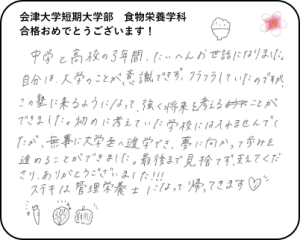 会津大学短期大学部　食物栄養学科
合格おめでとうございます！
中学と高校の3年間、たいへんお世話になりました。
自分は、大学のことが意識できず、フラフラしていたのですが、
この塾に来るようになって、強く将来を考えることが
できました。初めに考えていた学校には入れませんでし
たが、無事に大学へ進学でき、夢に向かって歩みを
進めることができました。最後まで見捨てず、支えてくだ
さり、ありがとうございました!!!
ステキな管理栄養士になって帰ってきます♡